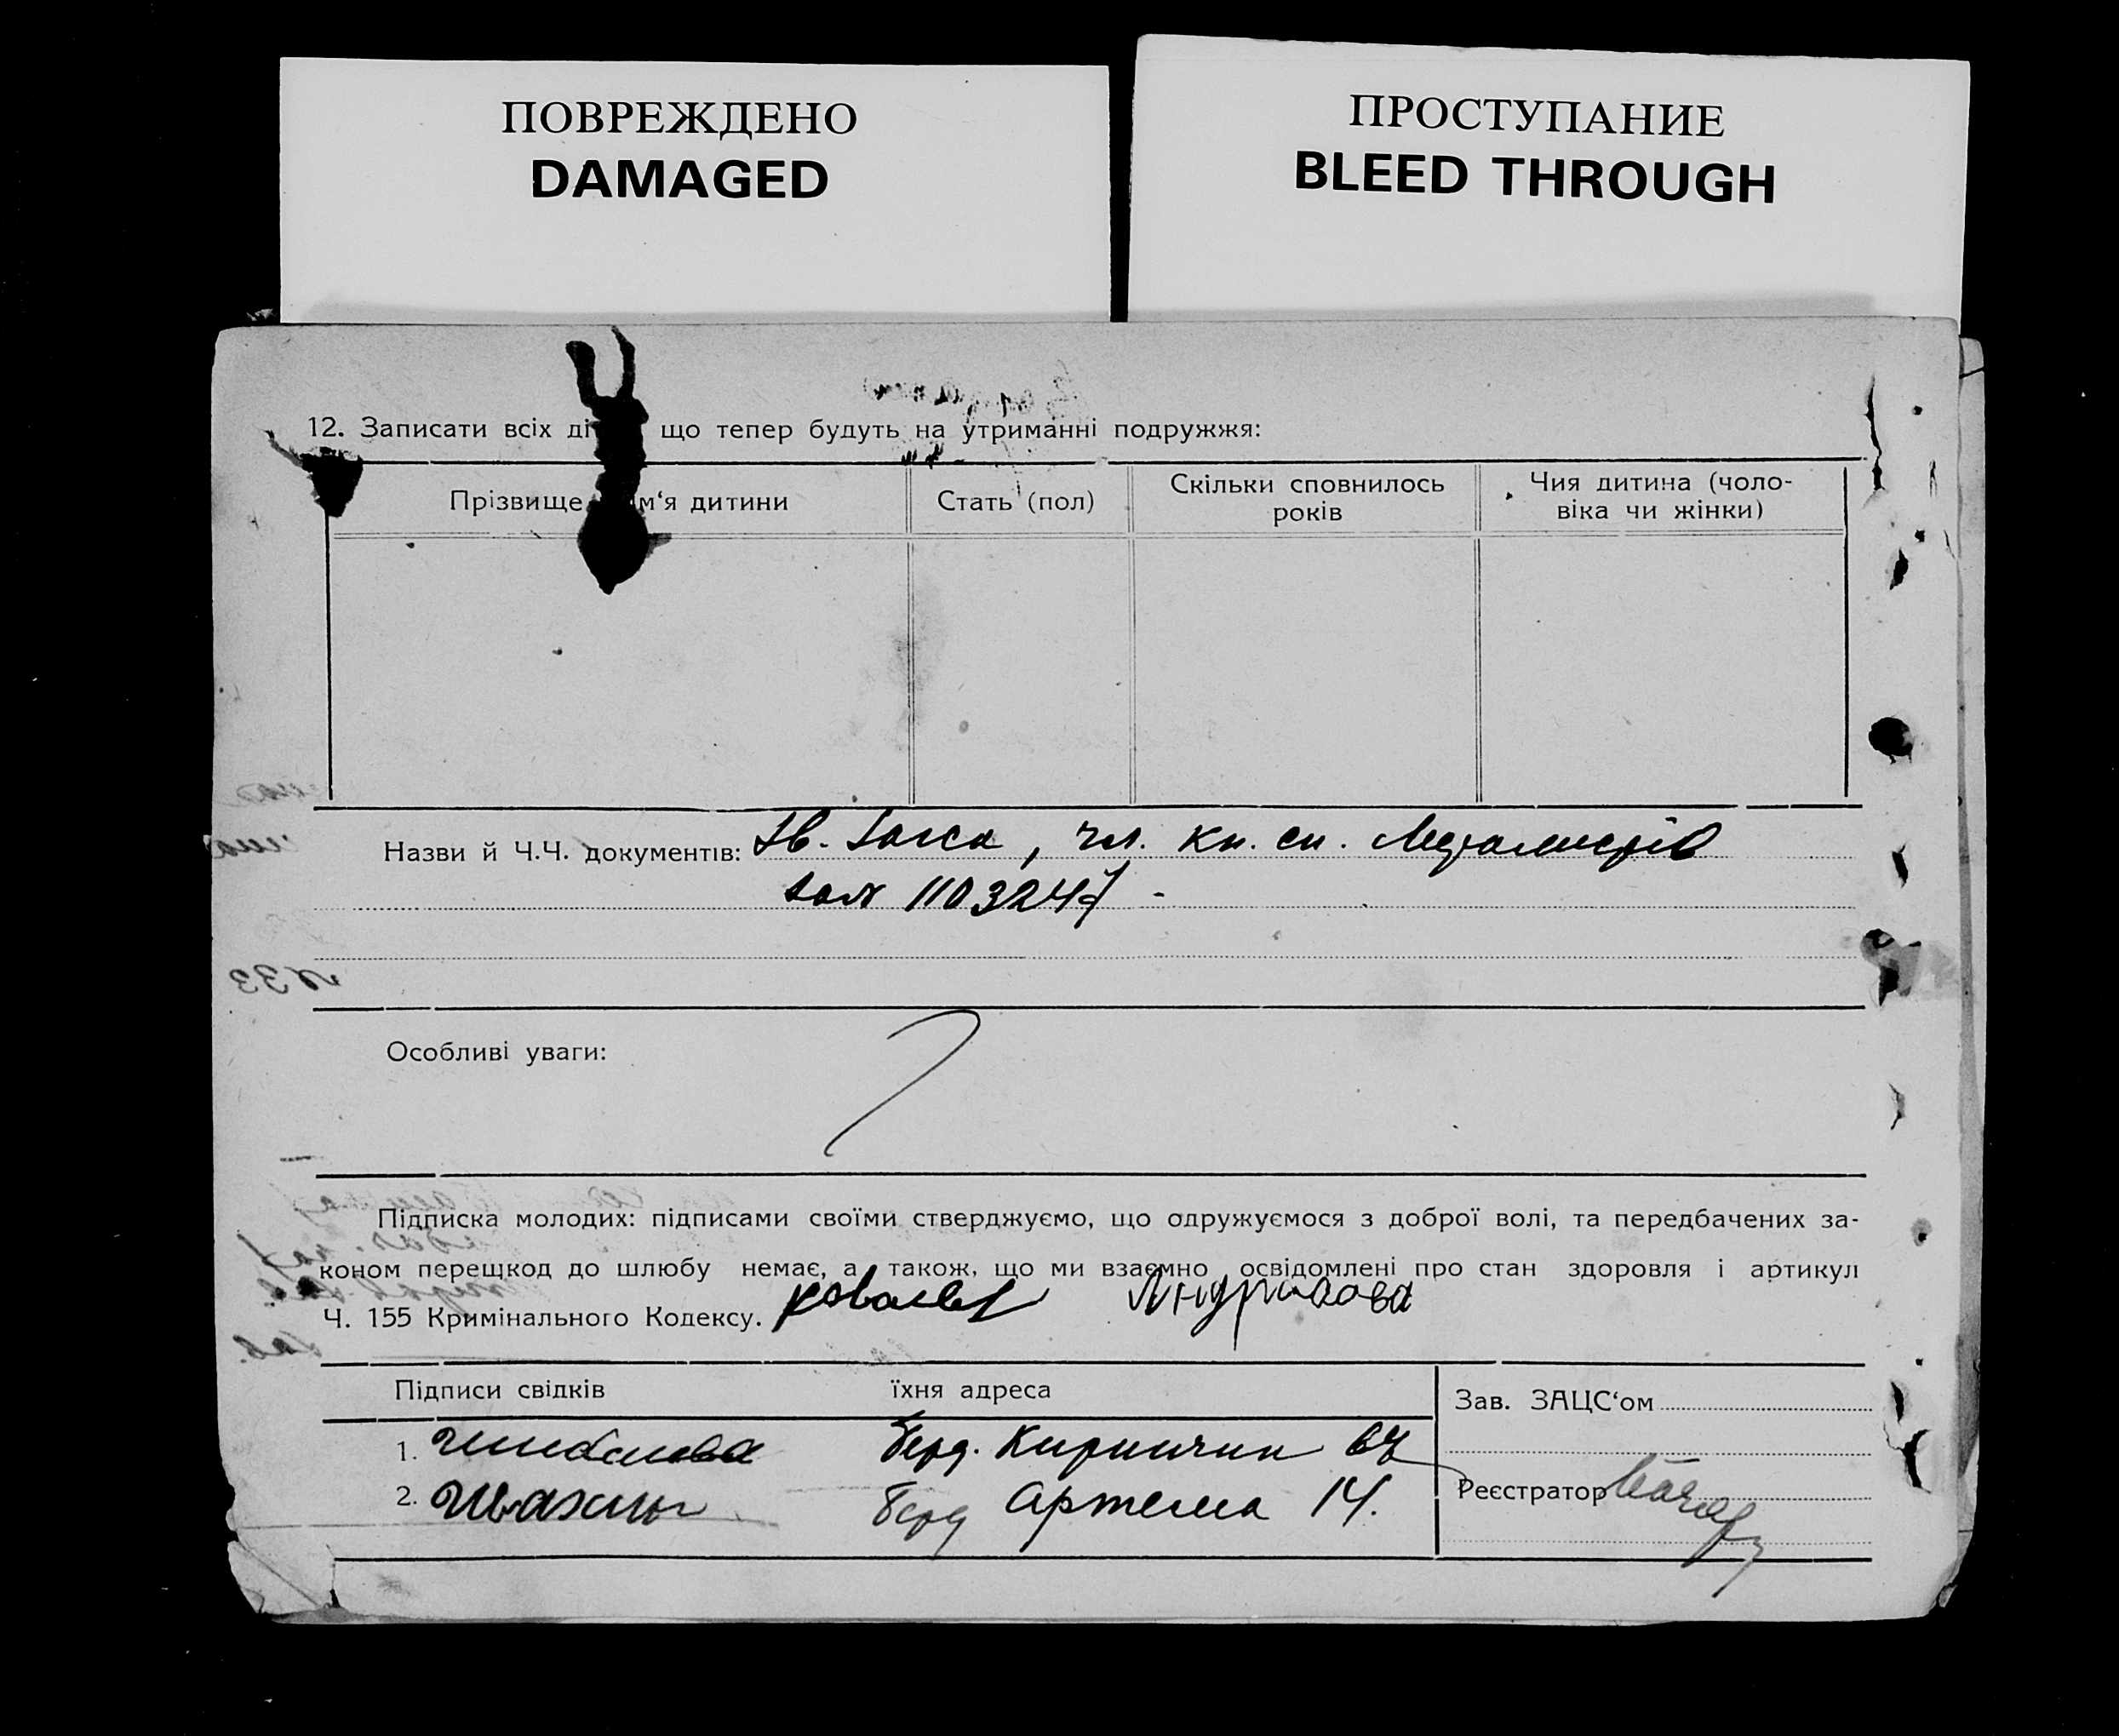 ПОВРЕЖДЕНО
DAMAGED
ПРОСТУПАНИЕ
BLEED THROUGH
12. Записати всіх ді що тепер будуть на утриманні подружжя:
Прізвище м'я дитини
Стать (пол)
Скільки сповнилось
років
Чия дитина (чоло-
віка чи жінки)
Назви й Ч.Ч. документів: чл. кн. сп. Металистів
1103247 -
Особливі уваги:
Підписка молодих: підписами своїми стверджуємо, що одружуємося з доброї волі, та передбачених за-
коном перещкод до шлюбу немає, а також, що ми взаємно освідомлені про стан здоровля і артикул
Ч. 155 Кримінального Кодексу.
Підписи свідків їхня адреса
Зав. ЗАЦС'ом
1. Берд. 67
2. Берд Артема 14.
Реєстратор